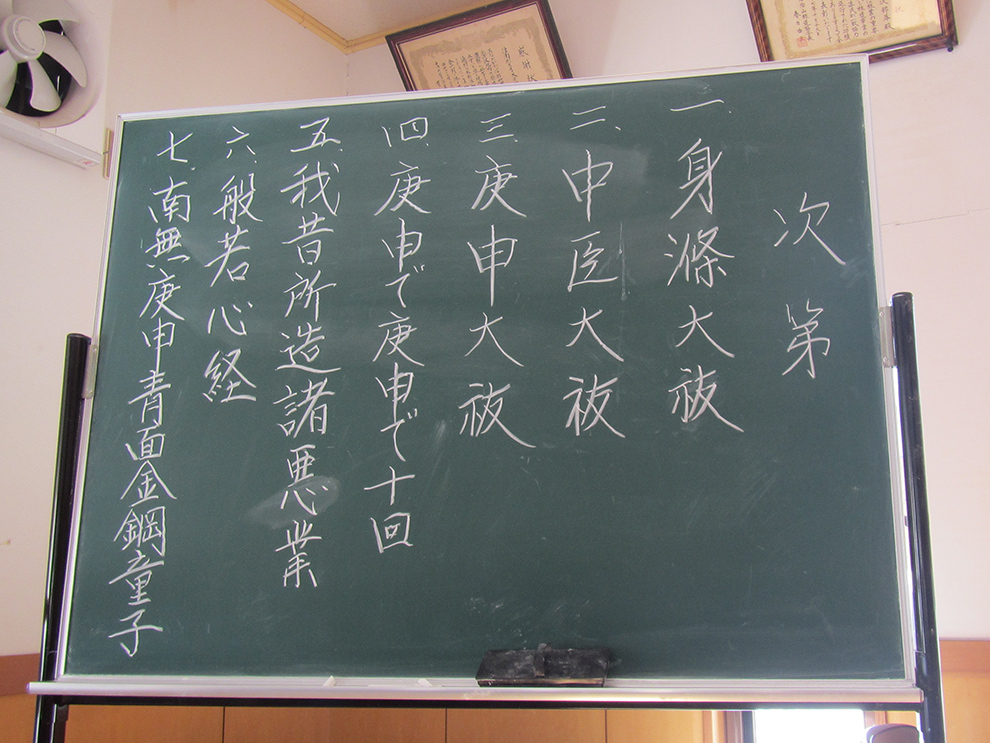 次第
一、身滌大祓
二、中臣大祓
三、庚申大祓
四、庚申で庚申で十回
五、我昔所造諸悪業
六、般若心経
七、南無庚申青面金鋼童子
感謝状